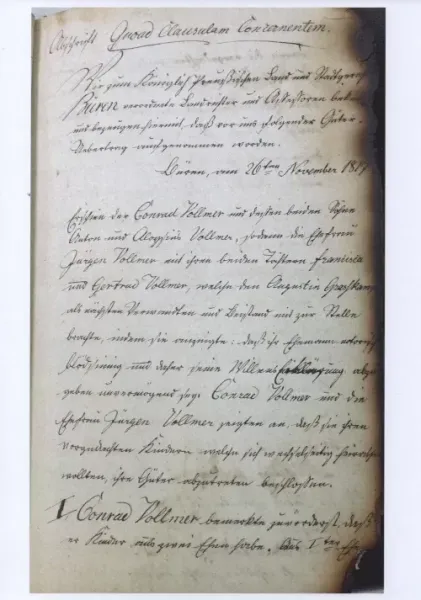 Abschrift Quoad Clausulam Concernentem.
Wir zum Königlich Preußischen Land und Stadtgericht
Büren verordnete Landrichter und Assessoren
und bezeugen hiermit, daß vor uns folgender Güter-
Uebertrag aufgenommen worden.
Büren, am 26ten November 18
Erschien der Conrad Vollmer und dessen beiden Söhne
Anton und Aloysius Vollmer, sodann die Ehefrau
Jürgen Vollmer mit ihren beiden Töchtern Francisca
und Gertrud Vollmer, welche den Augustin
als nächsten Verwandten und Beistand mit zur Stelle
brachte, indem sie anzeigte: daß ihr Ehemann
blödsinnig und daher seine Willens
geben unvermögend sey. Conrad Vollmer und die
Ehefrau Jürgen Vollmer zeigten an, daß sie ihren
vorgedachten Kindern welche sich wechselseitig heirathen
wollten, ihre Güter abzutreten beschlossen.
I. Conrad Vollmer bemerkte zuvörderst, daß
er Kinder aus zwei Ehen habe. Aus Iter Ehe